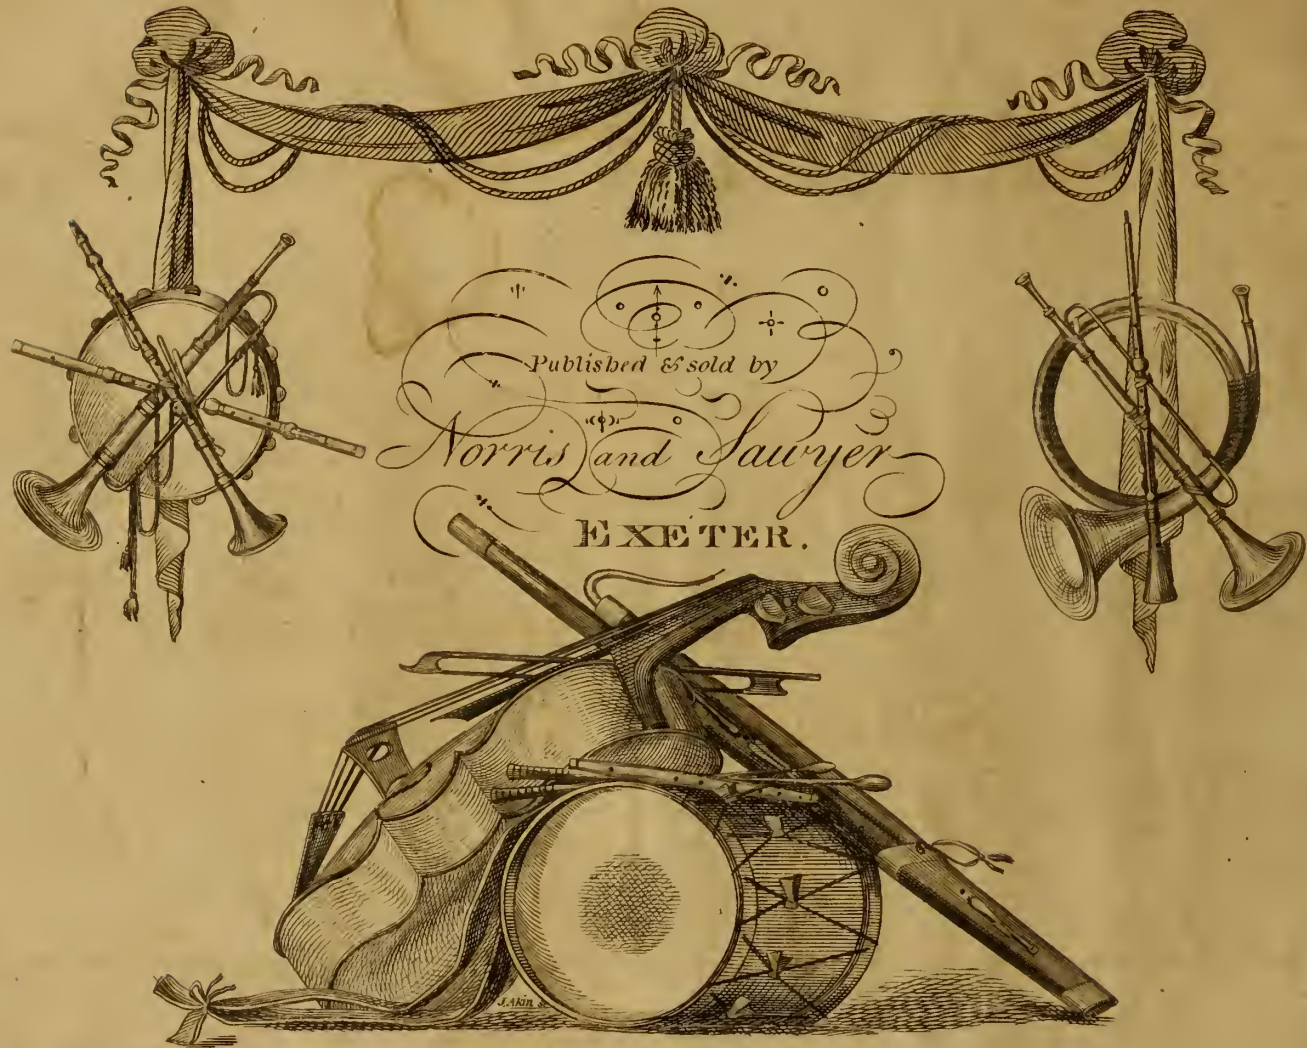 Published & sold by
Norris and Sawyer
EXETER.
J. Akin sc